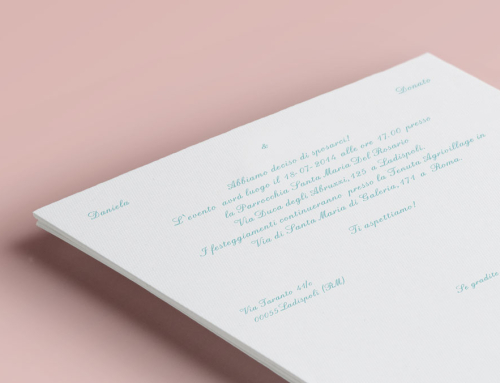 Daniela
Donato
&
Abbiamo deciso di sposarci!
L'evento avrà luogo il 13-07-2014 alle ore 17.00 presso
la Parrocchia Santa Maria Del Rosario
Via Duca degli Abruzzi, 125 a Ladispoli.
I festeggiamenti continueranno presso la Tenuta Agrivillage in
Via di Santa Maria di Galeria, 171 a Roma.
Ti aspettiamo!
Via Taranto
00055 Ladispoli (RM)
Si